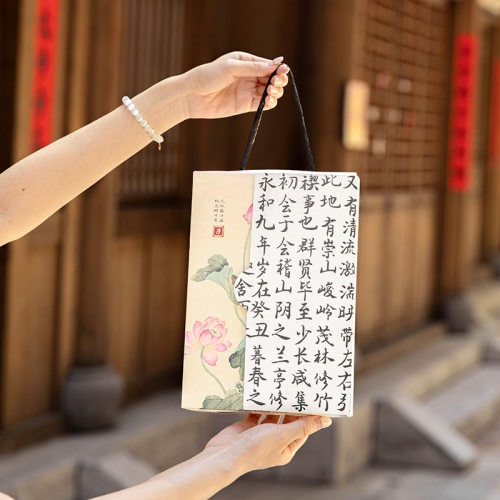 永和九年岁在癸丑暮春之
初会于会稽山阴之兰亭修
禊事也群贤毕至少长咸集
此地有崇山峻岭茂林修竹
又有清流激湍映带左右引